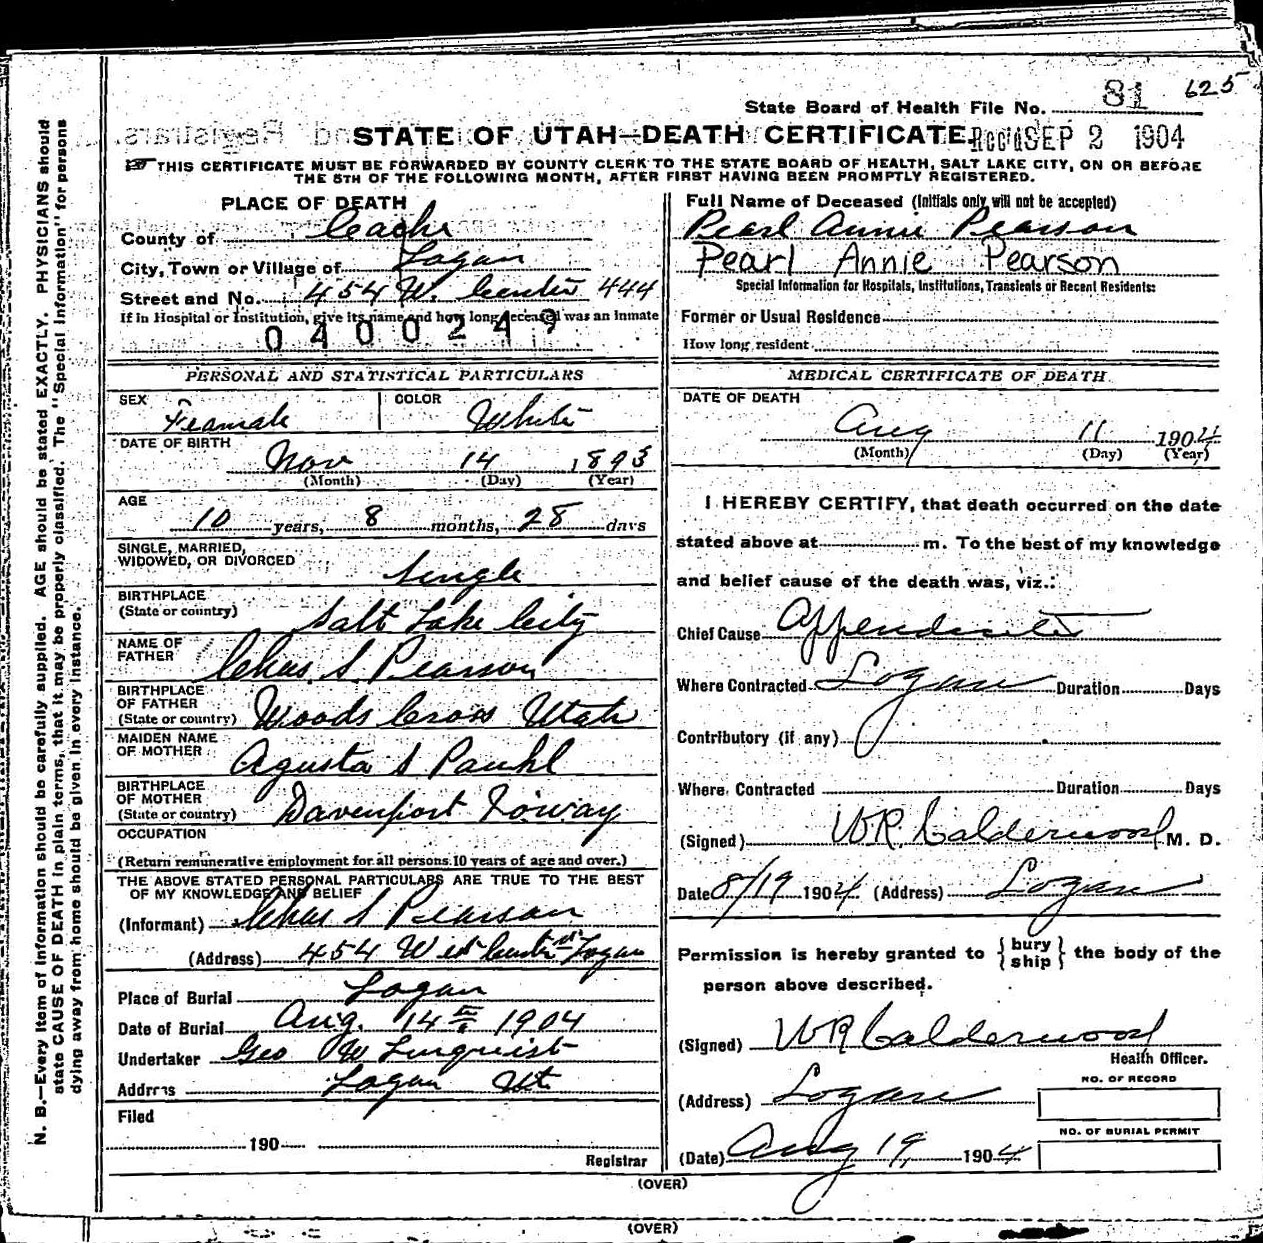 625
State Board of Health File No. 81
STATE OF UTAH—DEATH CERTIFICATE. SEP 2 1904
THIS CERTIFICATE MUST BE FORWARDED BY COUNTY CLERK TO THE STATE BOARD OF HEALTH, SALT LAKE CITY, ON OR BEFORE
THE 5TH OF THE FOLLOWING MONTH, AFTER FIRST HAVING BEEN PROMPTLY REGISTERED.
PLACE OF DEATH
County of Cache
City, Town or Village of Logan
Street and No. 454 W. Center 444
If in Hospital or Institution, give its name and how long deceased was an inmate
0400249
PERSONAL AND STATISTICAL PARTICULARS
SEX Feamale COLOR White
DATE OF BIRTH
Nov 14 1893
(Month) (Day) (Year)
AGE
10 years, 8 months, 28 days
SINGLE, MARRIED,
WIDOWED, OR DIVORCED Single
BIRTHPLACE
(State or country) Salt Lake City
NAME OF
FATHER Chas. S. Pearson
BIRTHPLACE
OF FATHER
(State or country) Woods Cross Utah
MAIDEN NAME
OF MOTHER Agusta S Pauhl
BIRTHPLACE
OF MOTHER
(State or country) Davenport Ioway
OCCUPATION
(Return remunerative employment for all persons 10 years of age and over.)
THE ABOVE STATED PERSONAL PARTICULARS ARE TRUE TO THE BEST
OF MY KNOWLEDGE AND BELIEF
(Informant) Chas S Pearson
(Address) 454 West Center st Logan
Place of Burial Logan
Date of Burial Aug. 14th 1904
Undertaker Geo W Linquist
Address Logan Ut
Filed
190
Registrar
Full Name of Deceased (Initials only will not be accepted)
Pearl Annie Pearson
Pearl Annie Pearson
Special Information for Hospitals, Institutions, Transients or Recent Residents:
Former or Usual Residence
How long resident
MEDICAL CERTIFICATE OF DEATH
DATE OF DEATH
Aug 11 1904
(Month) (Day) (Year)
I HEREBY CERTIFY, that death occurred on the date
stated above at m. To the best of my knowledge
and belief cause of the death was, viz.:
Chief Cause Appendicitis
Where Contracted Logan Duration Days
Contributory (if any)
Where Contracted Duration Days
(Signed) W.R. Calderwood M. D.
Date 8/19 1904 (Address) Logan
Permission is hereby granted to {bury
ship} the body of the
person above described.
(Signed) WR Calderwood
Health Officer.
(Address) Logan
NO. OF RECORD
NO. OF BURIAL PERMIT
(Date) Aug 19, 1904
(OVER)
(OVER)
N. B.—Every item of information should be carefully supplied. AGE should be stated EXACTLY. PHYSICIANS should
state CAUSE OF DEATH in plain terms, that it may be properly classified. The "Special Information" for persons
dying away from home should be given in every instance.